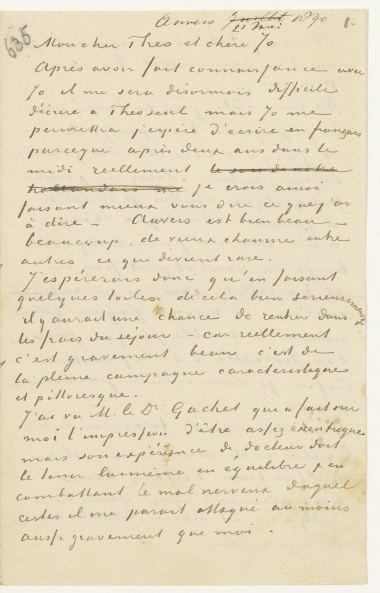 635
Auvers Juillet 1890 1-
21 Mai
Mon cher Theo et chère Jo
Après avoir fait connaissance avec
Jo il me sera désormais difficile
d'écrire à Theo seul mais Jo me
permettra j'espère d'écrire en français
parceque après deux ans dans le
midi reellement
je crois ainsi
faisant mieux vous dire ce que j'ai
à dire – Auvers est bien beau –
beaucoup de vieux chaumes entre
autres ce qui devient rare.
J'espérerais donc qu'en faisant
quelques toiles de cela bien serieusement
il y aurait une chance de rentrer dans
les frais du séjour – car reellement
c'est gravement beau c'est de
la pleine campagne caracteristique
et pittoresque.
J'ai vu M. le Dr Gachet qui a fait sur
moi l'impression d'être assez excentrique
mais son expérience de docteur doit
le tenir lui meme en équilibre en
combattant le mal nerveux duquel
certes il me parait attaqué au moins
aussi gravement que moi.